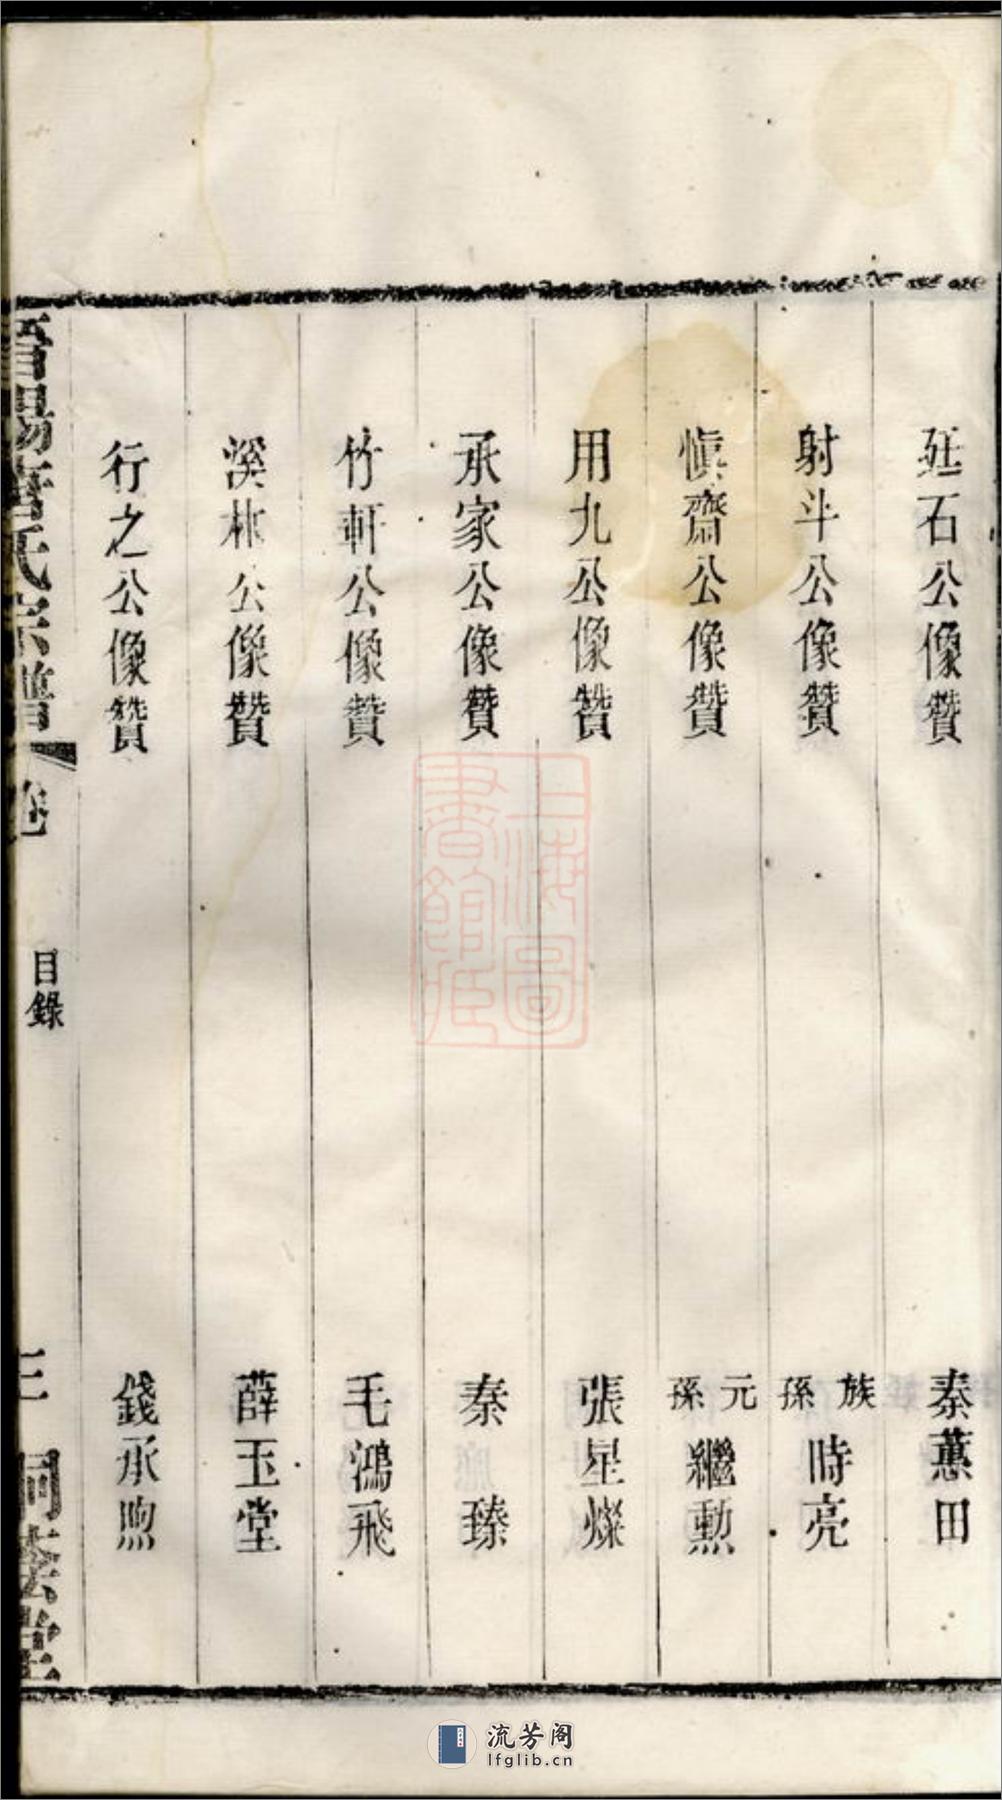 廷石公像贊 秦蕙田
射斗公像贊 族孫時亮
慎齋公像贊 元孫繼勲
用九公像贊 張星燦
承家公像贊 秦臻
竹軒公像贊 毛鴻飛
溪林公像贊 薛玉堂
行之公像贊 錢承煦
氏宗譜 卷 目錄 三
上海圖書館藏
流芳阁
lfglib.cn